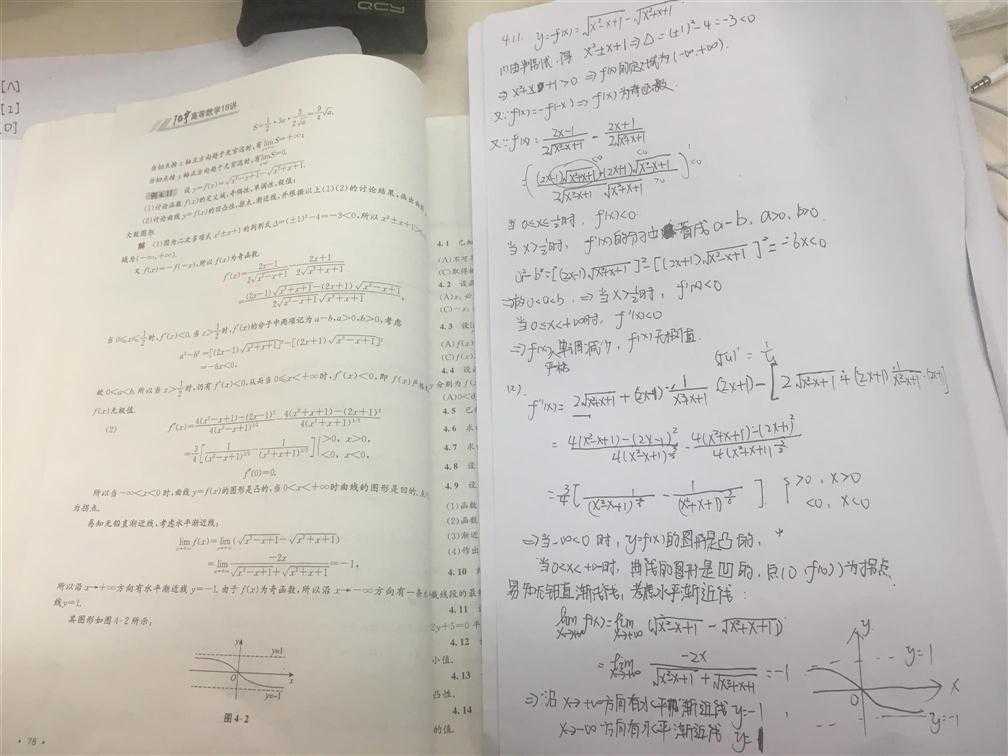 [Λ]
[1]
0]
高等数学18讲
S=\frac{1}{2}·3a·\frac{3}{2\sqrt{a}}=\frac{9}{4}\sqrt{a},
当切点按x轴正方向趋于无穷远时,有\lim S=+∞;
当切点按y轴正方向趋于无穷远时,有\lim S=0.
例4.11 设y=f(x)=\sqrt{x^2-x+1}-\sqrt{x^2+x+1}.
(1)讨论函数f(x)的定义域,奇偶性,单调性,极值;
(2)讨论曲线y=f(x)的凹凸性,拐点,渐近线,并根据以上(1)(2)的讨论结果,画出
大致图形.
解 (1)因为二次多项式x^2±x+1的判别式Δ=(±1)^2-4=-3<0,所以x^2±x+1>
域为(-∞,+∞).
又f(x)=-f(-x),所以f(x)为奇函数.
f'(x)=\frac{2x-1}{2\sqrt{x^2-x+1}}-\frac{2x+1}{2\sqrt{x^2+x+1}}
=\frac{(2x-1)\sqrt{x^2+x+1}-(2x+1)\sqrt{x^2-x+1}}{2\sqrt{x^2-x+1}\sqrt{x^2+x+1}},
当0≤x≤\frac{1}{2}时,f'(x)<0.当x>\frac{1}{2}时,f'(x)的分子中两项记为a-b,a>0,b>0,考虑
a^2-b^2=[(2x-1)\sqrt{x^2+x+1}]^2-[(2x+1)\sqrt{x^2-x+1}]^2
=-6x<0,
故0<a<b.所以当x>\frac{1}{2}时,仍有f'(x)<0,从而当0≤x<+∞时,f'(x)<0,即f(x)严格
f(x)无极值.
(2) f''(x)=\frac{4(x^2-x+1)-(2x-1)^2}{4(x^2-x+1)^{3/2}}-\frac{4(x^2+x+1)-(2x+1)^2}{4(x^2+x+1)^{3/2}}
=\frac{3}{4}[\frac{1}{(x^2-x+1)^{3/2}}-\frac{1}{(x^2+x+1)^{3/2}}]{>0, x>0, <0, x<0,
f''(0)=0.
所以当-∞<x<0时,曲线y=f(x)的图形是凸的,当0<x<+∞时曲线的图形是凹的.
为拐点.
易知无铅直渐近线,考虑水平渐近线:
\lim f(x)=\lim(\sqrt{x^2-x+1}-\sqrt{x^2+x+1})
=\lim\frac{-2x}{\sqrt{x^2-x+1}+\sqrt{x^2+x+1}}=-1,
所以沿x→+∞方向有水平渐近线y=-1.由于f(x)为奇函数,所以沿x→-∞方向有一条
线y=1.
其图形如图4-2所示:
y
y=1
O
x
y=-1
图4-2
·78·
4.1 已知
(A)不可
(C)取得
4.2 设
(A)x,
(C)-x,
4.3 设
(A)f(x)
(C)f(x)
4.4 设
分别为f(
(A)0<d
4.5 已
4.6 求
4.7 求
4.8 设
4.9 设
(1)函数
(2)函数
(3)渐近
(4)作出
4.10
截线段的最
4.11 设
2y+5=0平
4.12
小值.
4.13
凸性.
4.14
的值.
4.11. y=f(x)=\sqrt{x^2-x+1}-\sqrt{x^2+x+1}
(1)由判别式,得 x^2±x+1⇒Δ=(±1)^2-4=-3<0
⇒x^2±x+1>0 ⇒f(x)的定义域为(-∞,+∞).
又∵f(x)=-f(-x)⇒f(x)为奇函数.
又∵f'(x)=\frac{2x-1}{2\sqrt{x^2-x+1}}-\frac{2x+1}{2\sqrt{x^2+x+1}}
=(\frac{(2x-1)\sqrt{x^2+x+1}-(2x+1)\sqrt{x^2-x+1}}{2\sqrt{x^2-x+1}\sqrt{x^2+x+1}})<0
当0≤x≤\frac{1}{2}时, f'(x)<0
当x>\frac{1}{2}时, f'(x)的分子 看成a-b, a>0, b>0.
a^2-b^2=[(2x-1)\sqrt{x^2+x+1}]^2-[(2x+1)\sqrt{x^2-x+1}]^2=-6x<0
⇒故0<a<b, ⇒当x>\frac{1}{2}时, f'(x)<0
当0≤x<+∞时, f'(x)<0
⇒f(x)严格单调减少, f(x)无极值.
(2).
f''(x)=
=\frac{4(x^2-x+1)-(2x-1)^2}{4(x^2-x+1)^{\frac{3}{2}}}-\frac{4(x^2+x+1)-(2x+1)^2}{4(x^2+x+1)^{\frac{3}{2}}}
=\frac{3}{4}[\frac{1}{(x^2-x+1)^{\frac{3}{2}}}-\frac{1}{(x^2+x+1)^{\frac{3}{2}}}] {>0, x>0 <0, x<0
⇒当-∞<0时, y=f(x)的图形是凸的,
当0<x<+∞时, 曲线的图形是凹的, 点(0, f(0))为拐点.
易知无铅直渐近线, 考虑水平渐近线:
\lim_{x→+∞}f(x)=\lim_{x→+∞}(\sqrt{x^2-x+1}-\sqrt{x^2+x+1})
=\lim_{x→+∞}\frac{-2x}{\sqrt{x^2-x+1}+\sqrt{x^2+x+1}}=-1
⇒沿x→+∞方向有水平渐近线y=-1,
x→-∞方向有水平渐近线y=1
y
y=1
x
y=-1